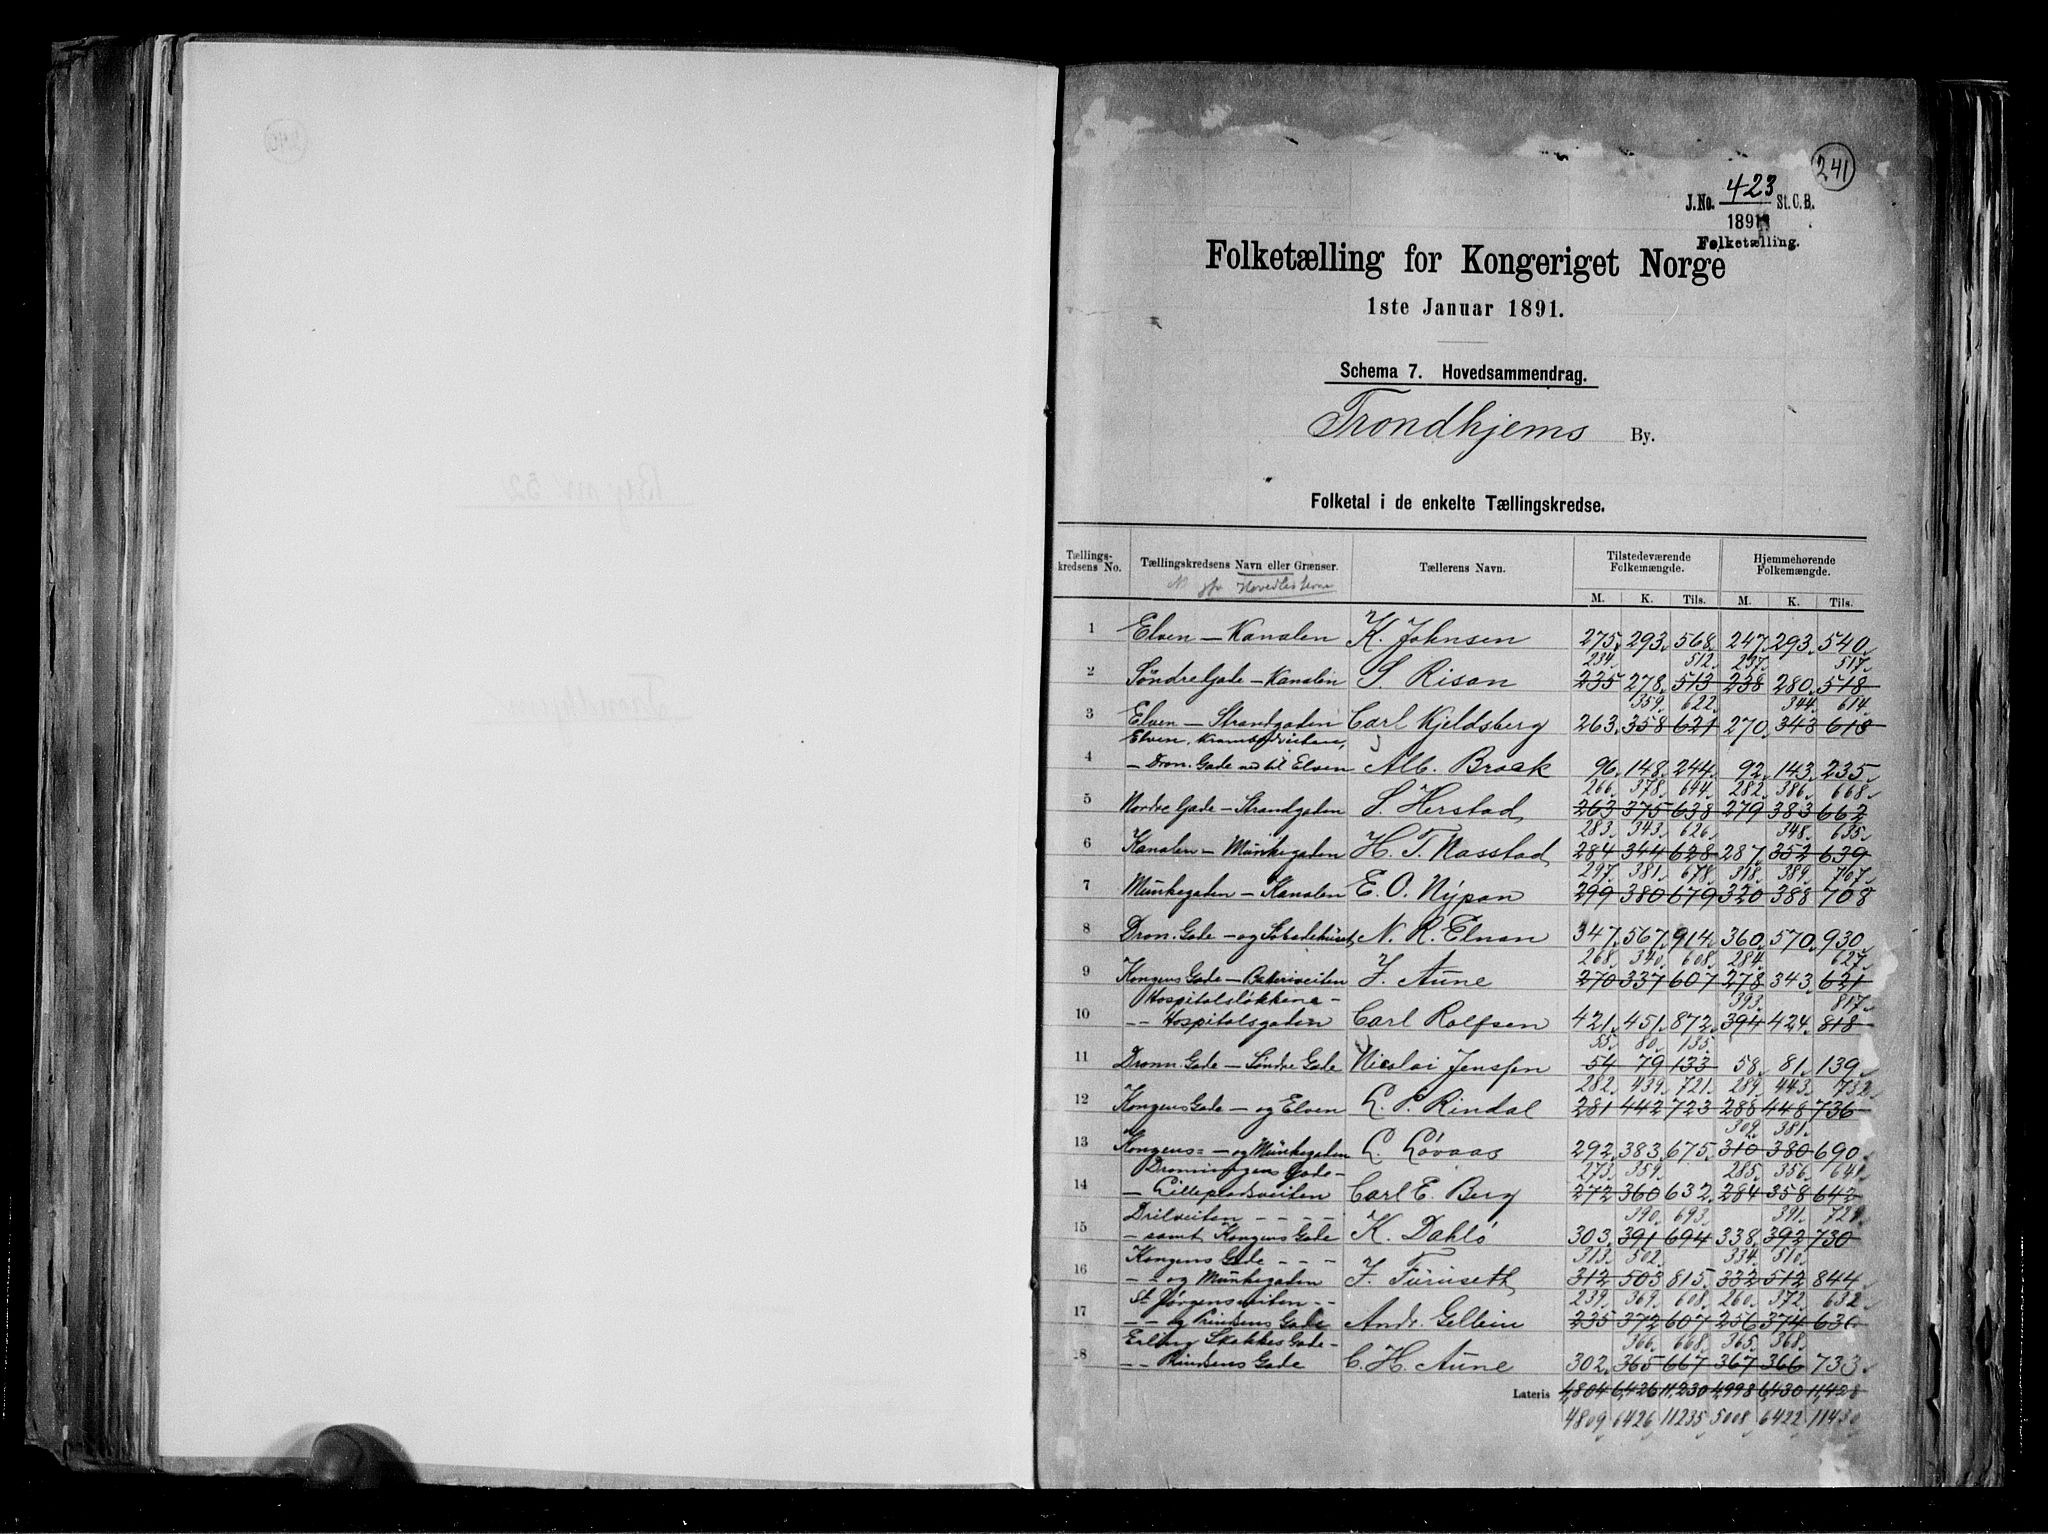 241
J.No. 423 St. C. B.
1891
Folketælling.
Folketælling for Kongeriget Norge
1ste Januar 1891.
Schema 7. Hovedsammendrag.
Trondhjems By.
Folketal i de enkelte Tællingskredse.
Tællings-kredsens No. Tællingskredsens Navn eller Grænser. Tællerens Navn. Tilstedeværende Folkemængde. Hjemmehørende Folkemængde.
Hovedlisterne
M. K. Tils. M. K. Tils.
1 Elven — Kanalen K. Johnsen 275 293 568 247 293 540
234 512 237 517
2 Søndre Gade — Kanalen S. Risan 235 278 513 238 280 518
359 622 344 614
3 Elven — Strandgaden Carl Kjeldsberg 263 358 621 270 343 613
Elven, Krambodveiten,
4 — Dron. Gade ned til Elven Alb. Braak 96 148 244 92 143 235
266 378 644 282 386 668
5 Nordre Gade — Strandgaden S. Herstad 263 375 638 279 383 662
283 343 626 348 635
6 Kanalen — Munkegaden H. T. Nasstad 284 344 628 287 352 639
297 381 678 318 389 707
7 Munkegaden — Kanalen E. O. Nypan 299 380 679 320 388 708
8 Dron. Gade — og Søbadehuset N. R. Elnan 347 567 914 360 570 930
268 340 608 284 627
9 Kongens Gade — Bakeriveiten J. Aune 270 337 607 278 343 621
Hospitalsløkkerne — 393 817
10 — Hospitalsgaden Carl Rolfsen 421 451 872 394 424 818
55 80 135
11 Dronn. Gade — Søndre Gade Nicolai Jenssen 54 79 133 58 81 139
282 439 721 289 443 732
12 Kongens Gade — og Elven L. P. Rindal 281 442 723 288 448 736
309 381
13 Kongens = — og Munkegaden L. Løvaas 292 383 675 310 380 690
Dronningens Gade — 273 359 285 356 641
14 — Lillepladsveiten Carl E. Berg 272 360 632 284 358 642
Drilveiten — 390 693 391 729
15 — samt Kongens Gade K. Dahlø 303 391 694 338 392 730
Kongens Gade — 313 502 334 510
16 — og Munkegaden J. Furuseth 312 503 815 332 512 844
St. Jørgensveiten — 239 369 608 260 372 632
17 — og Prindsens Gade Andr. Gellein 235 372 607 256 374 630
Erling Skakkes Gade — 366 668 365 368
18 — Prindsens Gade C. H. Aune 302 365 667 367 366 733
Lateris 4,804 6,426 11,230 4,998 6,430 11,428
4809 6426 11235 5008 6422 11430